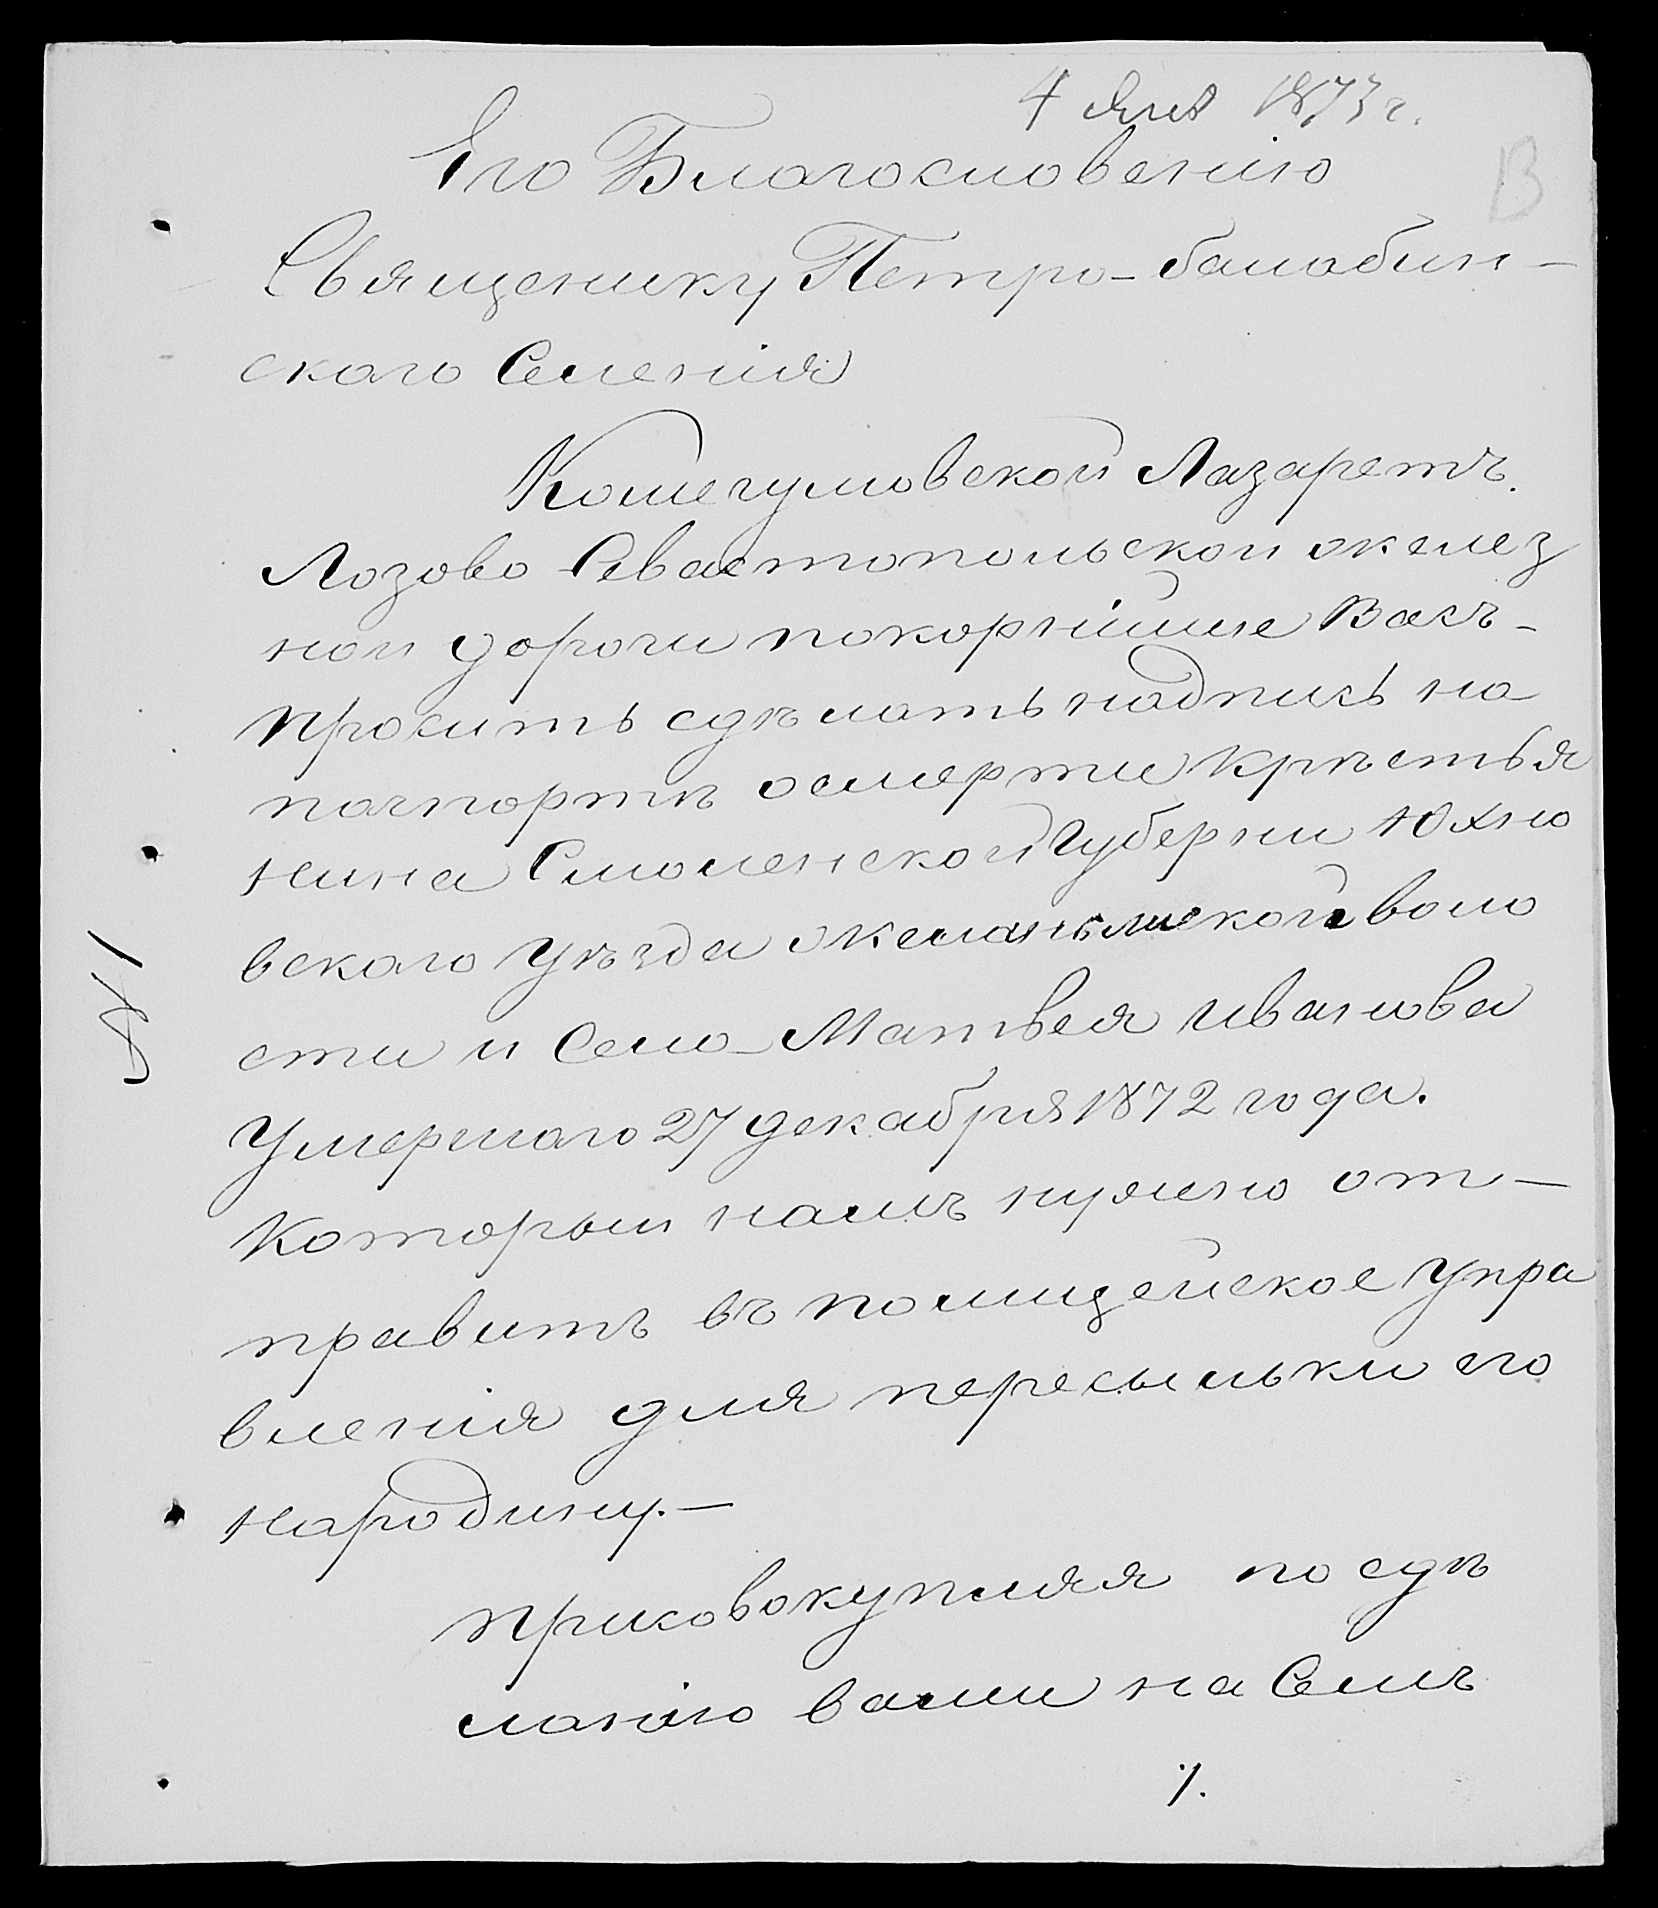 4 Янв 1873 г.
Его Благословенію
Священику Петро-балабин-
скаго Селенія
Кошегумовской Лазаретъ.
Лозово Севастопольской желез
ной дороги покорнійше Васъ-
просить сдѣлать надпись на
пачпортѣ осмерти Крѣстья
нина Смоленской Губерни Юхно
вского Уѣзда Желаньмской воло
сти и Село Матвея Иванова
Умершаго 27 декабря 1872 года.
Которыи намъ нужно от-
правитъ въ полицейское Упра
вленія для пересыльки его
народину.-
присовокупляя по сдѣ
ланію вами на Семъ
№ 1